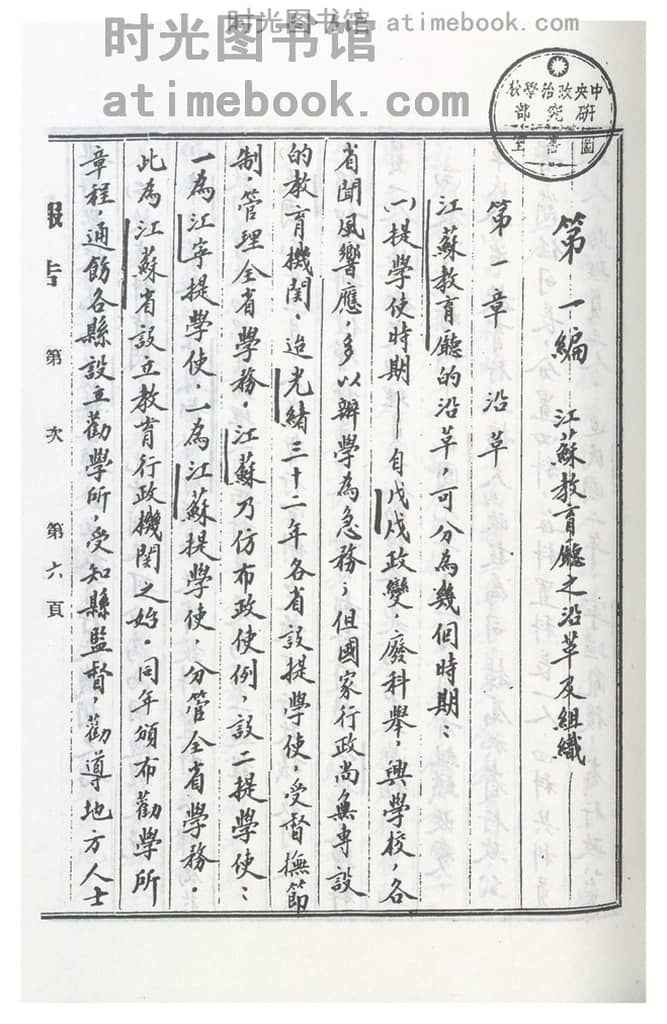 时光图书馆 atimebook.com
时光图书馆
atimebook.com
中央政治學校
研究部
圖書室
第一編 江蘇教育廳之沿革及組織
第一章 沿革
江蘇教育廳的沿革，可分為幾個時期：
㈠提學使時期——自戊戌政變，廢科舉，興學校，各
省聞風響應，多以辦學為急務；但國家行政尚無專設
的教育機関，迨光緒三十二年各省設提學使，受督撫節
制，管理全省學務，江蘇乃仿布政使例，設二提學使：
一為江寧提學使，一為江蘇提學使，分管全省學務。
此為江蘇省設立教育行政機関之始。同年頒布勸學所
章程，通飭各縣設立勸學所，受知縣監督，勸導地方人士
報告 第 次 第六頁